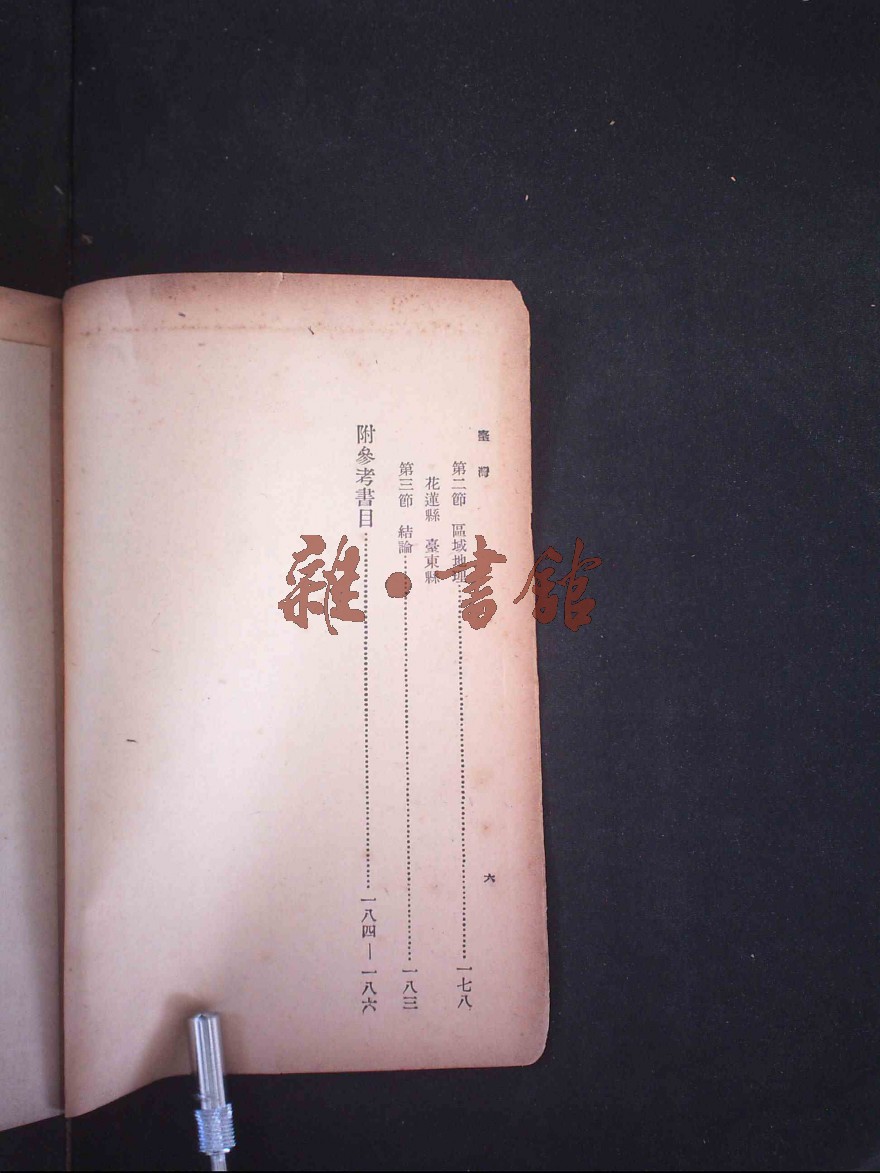 臺灣
六
第二節 區域地理……一七八
花蓮縣 臺東縣
第三節 結論……一八三
附參考書目……一八四—一八六
雜·書館